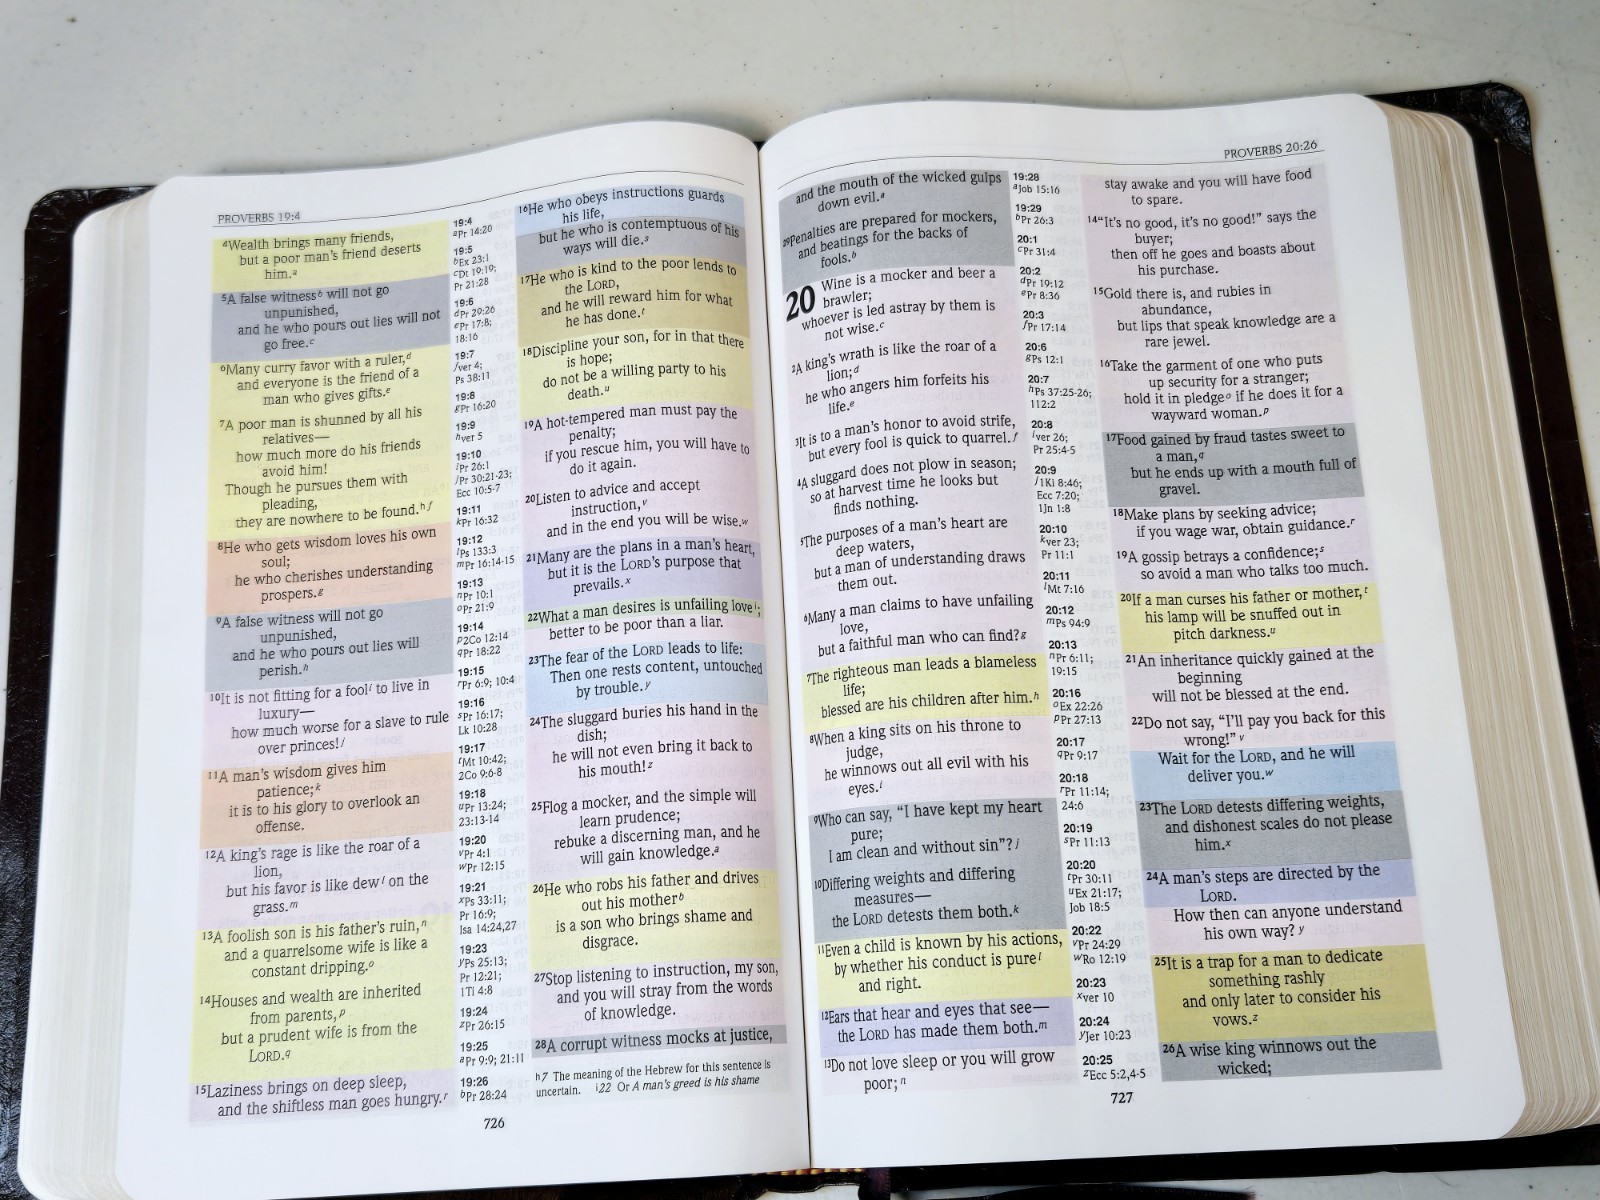 PROVERBS 19:4
⁴Wealth brings many friends,
but a poor man's friend deserts
him.ᵃ
⁵A false witnessᵇ will not go
unpunished,
and he who pours out lies will not
go free.ᶜ
⁶Many curry favor with a ruler,ᵈ
and everyone is the friend of a
man who gives gifts.ᵉ
⁷A poor man is shunned by all his
relatives—
how much more do his friends
avoid him!
Though he pursues them with
pleading,
they are nowhere to be found.ʰ ᶠ
⁸He who gets wisdom loves his own
soul;
he who cherishes understanding
prospers.ᵍ
⁹A false witness will not go
unpunished,
and he who pours out lies will
perish.ʰ
¹⁰It is not fitting for a foolⁱ to live in
luxury—
how much worse for a slave to rule
over princes!ʲ
¹¹A man's wisdom gives him
patience;ᵏ
it is to his glory to overlook an
offense.
¹²A king's rage is like the roar of a
lion,
but his favor is like dewˡ on the
grass.ᵐ
¹³A foolish son is his father's ruin,ⁿ
and a quarrelsome wife is like a
constant dripping.ᵒ
¹⁴Houses and wealth are inherited
from parents,ᵖ
but a prudent wife is from the
LORD.q
¹⁵Laziness brings on deep sleep,
and the shiftless man goes hungry.ʳ
19:4
ᵃPr 14:20
19:5
ᵇEx 23:1
ᶜDt 19:19;
Pr 21:28
19:6
ᵈPr 29:26
ᵉPr 17:8;
18:16
19:7
ᶠver 4;
Ps 38:11
19:8
ᵍPr 16:20
19:9
ʰver 5
19:10
ⁱPr 26:1
ʲPr 30:21-23;
Ecc 10:5-7
19:11
ᵏPr 16:32
19:12
ˡPs 133:3
ᵐPr 16:14-15
19:13
ⁿPr 10:1
ᵒPr 21:9
19:14
ᵖ2Co 12:14
qPr 18:22
19:15
ʳPr 6:9; 10:4
19:16
ˢPr 16:17;
Lk 10:28
19:17
ᵗMt 10:42;
2Co 9:6-8
19:18
ᵘPr 13:24;
23:13-14
19:20
ᵛPr 4:1
ʷPr 12:15
19:21
ˣPs 33:11;
Pr 16:9;
Isa 14:24,27
19:23
ʸPs 25:13;
Pr 12:21;
1Ti 4:8
19:24
ᶻPr 26:15
19:25
ᵃPr 9:9; 21:11
19:26
ᵇPr 28:24
¹⁶He who obeys instructions guards
his life,
but he who is contemptuous of his
ways will die.ˢ
¹⁷He who is kind to the poor lends to
the LORD,
and he will reward him for what
he has done.ᵗ
¹⁸Discipline your son, for in that there
is hope;
do not be a willing party to his
death.ᵘ
¹⁹A hot-tempered man must pay the
penalty;
if you rescue him, you will have to
do it again.
²⁰Listen to advice and accept
instruction,ᵛ
and in the end you will be wise.ʷ
²¹Many are the plans in a man's heart,
but it is the LORD's purpose that
prevails.ˣ
²²What a man desires is unfailing loveⁱ;
better to be poor than a liar.
²³The fear of the LORD leads to life:
Then one rests content, untouched
by trouble.ʸ
²⁴The sluggard buries his hand in the
dish;
he will not even bring it back to
his mouth!ᶻ
²⁵Flog a mocker, and the simple will
learn prudence;
rebuke a discerning man, and he
will gain knowledge.ᵃ
²⁶He who robs his father and drives
out his motherᵇ
is a son who brings shame and
disgrace.
²⁷Stop listening to instruction, my son,
and you will stray from the words
of knowledge.
²⁸A corrupt witness mocks at justice,
ʰ7 The meaning of the Hebrew for this sentence is
uncertain. ⁱ22 Or A man's greed is his shame
726
PROVERBS 20:26
and the mouth of the wicked gulps
down evil.ᵃ
²⁹Penalties are prepared for mockers,
and beatings for the backs of
fools.ᵇ
20 Wine is a mocker and beer a
brawler;
whoever is led astray by them is
not wise.ᶜ
²A king's wrath is like the roar of a
lion;ᵈ
he who angers him forfeits his
life.ᵉ
³It is to a man's honor to avoid strife,
but every fool is quick to quarrel.ᶠ
⁴A sluggard does not plow in season;
so at harvest time he looks but
finds nothing.
⁵The purposes of a man's heart are
deep waters,
but a man of understanding draws
them out.
⁶Many a man claims to have unfailing
love,
but a faithful man who can find?ᵍ
⁷The righteous man leads a blameless
life;
blessed are his children after him.ʰ
⁸When a king sits on his throne to
judge,
he winnows out all evil with his
eyes.ⁱ
⁹Who can say, "I have kept my heart
pure;
I am clean and without sin"?ʲ
¹⁰Differing weights and differing
measures—
the LORD detests them both.ᵏ
¹¹Even a child is known by his actions,
by whether his conduct is pureˡ
and right.
¹²Ears that hear and eyes that see—
the LORD has made them both.ᵐ
¹³Do not love sleep or you will grow
poor;ⁿ
19:28
ᵃJob 15:16
19:29
ᵇPr 26:3
20:1
ᶜPr 31:4
20:2
ᵈPr 19:12
ᵉPr 8:36
20:3
ᶠPr 17:14
20:6
ᵍPs 12:1
20:7
ʰPs 37:25-26;
112:2
20:8
ⁱver 26;
Pr 25:4-5
20:9
ʲ1Ki 8:46;
Ecc 7:20;
1Jn 1:8
20:10
ᵏver 23;
Pr 11:1
20:11
ˡMt 7:16
20:12
ᵐPs 94:9
20:13
ⁿPr 6:11;
19:15
20:16
ᵒEx 22:26
ᵖPr 27:13
20:17
qPr 9:17
20:18
ʳPr 11:14;
24:6
20:19
ˢPr 11:13
20:20
ᵗPr 30:11
ᵘEx 21:17;
Job 18:5
20:22
ᵛPr 24:29
ʷRo 12:19
20:23
ˣver 10
20:24
ʸJer 10:23
20:25
ᶻEcc 5:2,4-5
stay awake and you will have food
to spare.
¹⁴"It's no good, it's no good!" says the
buyer;
then off he goes and boasts about
his purchase.
¹⁵Gold there is, and rubies in
abundance,
but lips that speak knowledge are a
rare jewel.
¹⁶Take the garment of one who puts
up security for a stranger;
hold it in pledgeᵒ if he does it for a
wayward woman.ᵖ
¹⁷Food gained by fraud tastes sweet to
a man,q
but he ends up with a mouth full of
gravel.
¹⁸Make plans by seeking advice;
if you wage war, obtain guidance.ʳ
¹⁹A gossip betrays a confidence;ˢ
so avoid a man who talks too much.
²⁰If a man curses his father or mother,ᵗ
his lamp will be snuffed out in
pitch darkness.ᵘ
²¹An inheritance quickly gained at the
beginning
will not be blessed at the end.
²²Do not say, "I'll pay you back for this
wrong!" ᵛ
Wait for the LORD, and he will
deliver you.ʷ
²³The LORD detests differing weights,
and dishonest scales do not please
him.ˣ
²⁴A man's steps are directed by the
LORD.
How then can anyone understand
his own way?ʸ
²⁵It is a trap for a man to dedicate
something rashly
and only later to consider his
vows.ᶻ
²⁶A wise king winnows out the
wicked;
727